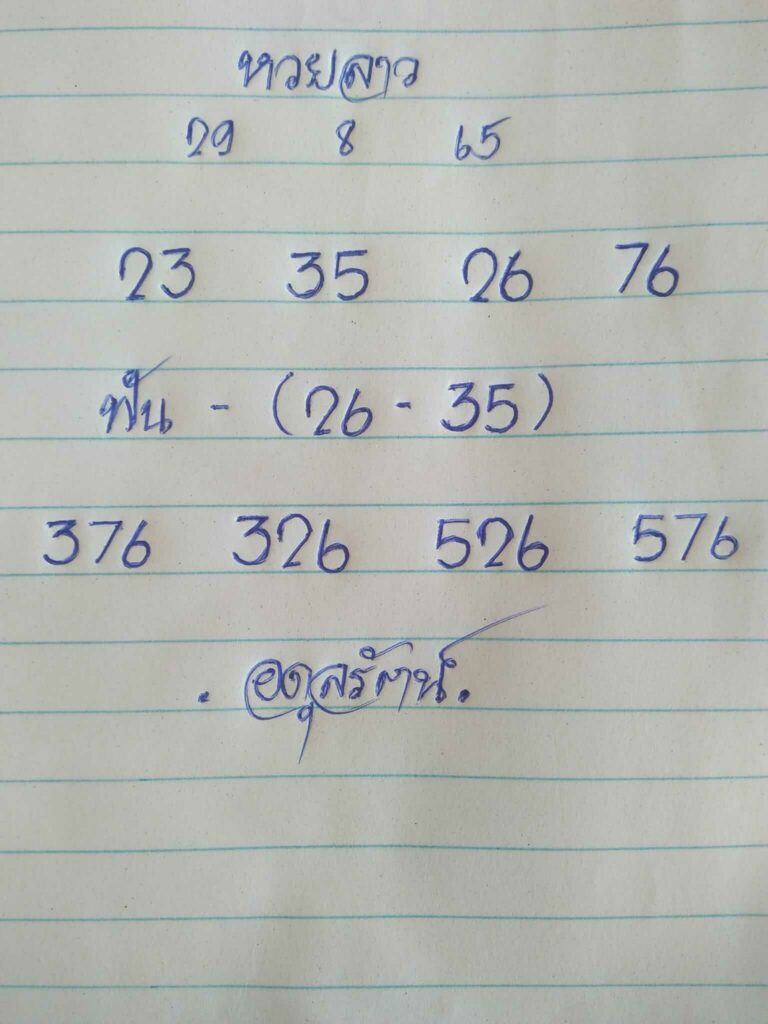 หวยลาว
29 8 65
23 35 26 76
ฟัน - (26 - 35)
376 326 526 576
. อดุลรัตน์.